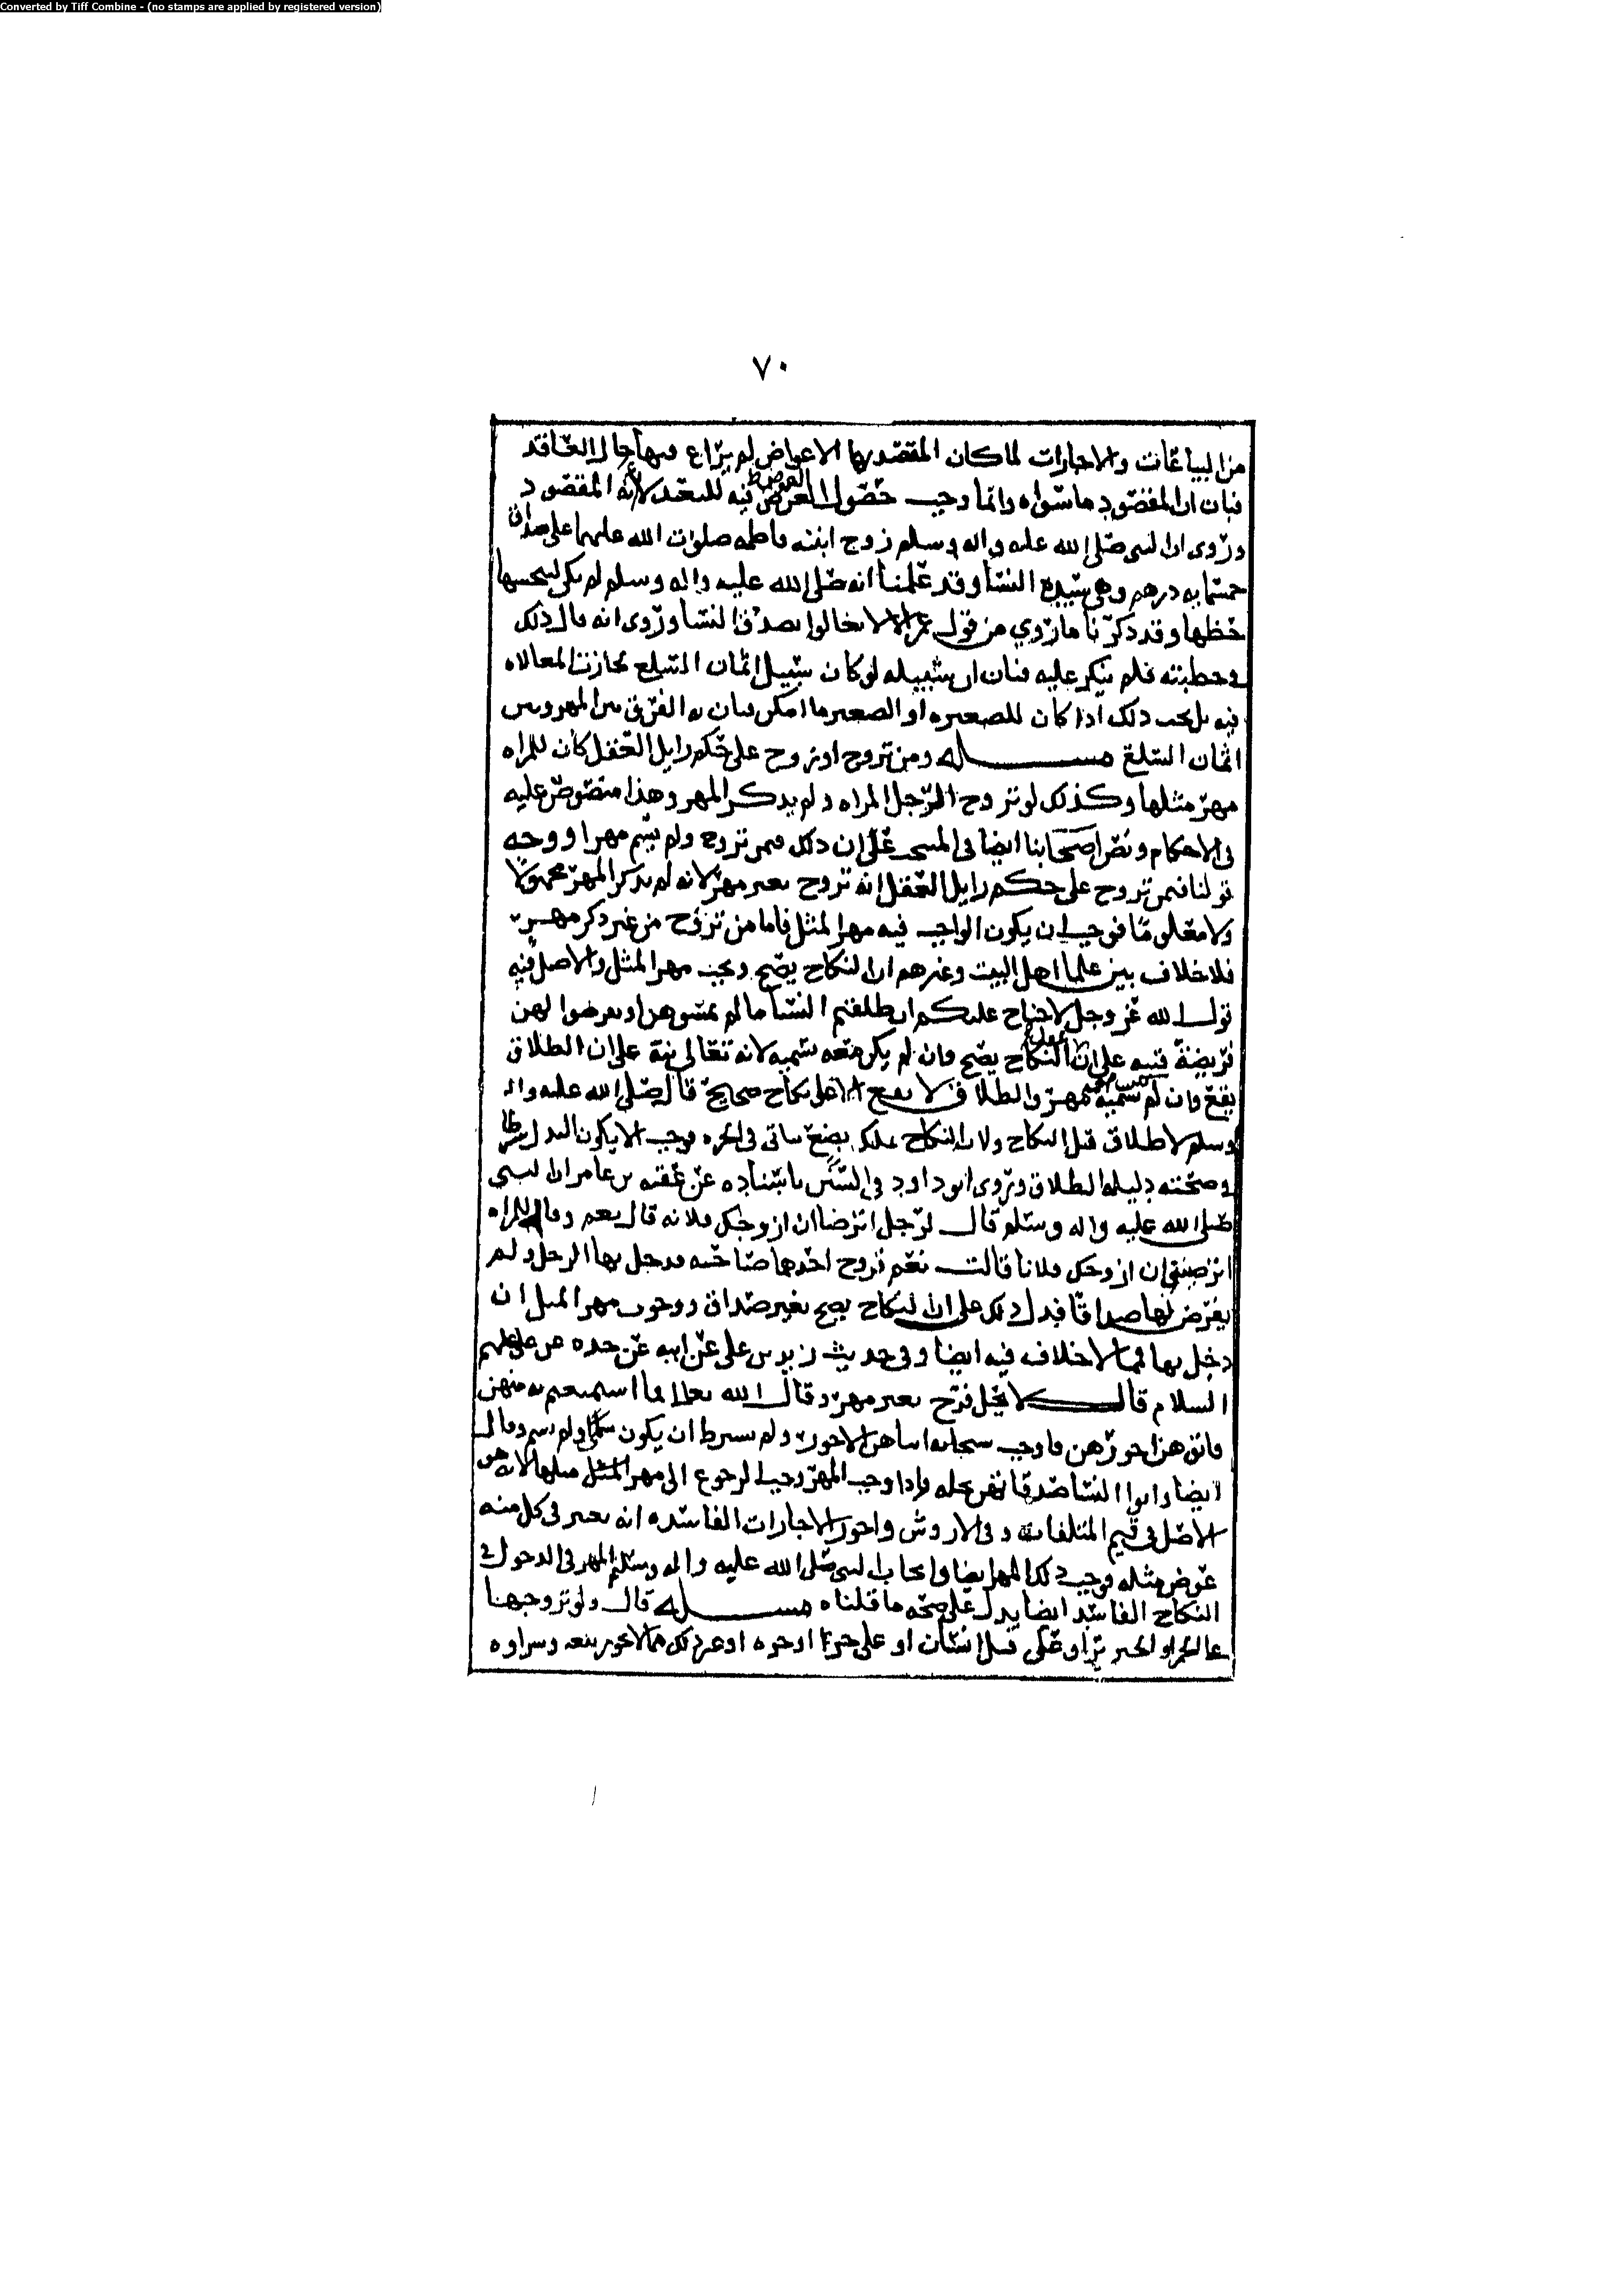 Converted by Tiff Combine - (no stamps are applied by registered version)
٧٠
من البياعات والاجارات لما كان المقصد بها الاعواض لم يراع فيها حال العاقد
فبان ان المقصود ما سواه وانما وجب حصول العوض فيه للبعد لانه المقصود
وروى ان النبى صلى الله عليه واله وسلم زوج ابنته فاطمه صلوات الله عليهما على صداق
خمسمايه درهم وهى سيده النسا وقد علمنا انه صلى الله عليه واله وسلم لم يكن ليبخسها
حظها وقد ذكرنا ما روي من قول عمر الا لا تغالوا بصدق النسا وروى انه قال ذلك
فى خطبته فلم ينكر عليه فبان ان سبيله لو كان سبيل اثمان السلع لجازت المغالاه
فيه بل يجب ذلك اذا كان للصغيره او الصغير ما امكن فبان به الفرق بين المهر وبين
اثمان السلع مسـله ومن تزوج او تزوج على حكم زايل العقل كان للمراه
مهر مثلها وكذلك لو تزوج الرجل المراه ولم يذكر المهر وهذا منصوص عليه
فى الاحكام ونص اصحابنا ايضا فى المنتخب على ان ذلك فيمن تزوج ولم يسم مهرا ووجه
قولنا فيمن تزوج على حكم زايل العقل انه تزوج بغير مهر لانه لم يذكر المهر مجهولا
ولا معلوما فوجب ان يكون الواجب فيه مهر المثل فاما من تزوج من غير ذكر مهر
فلا خلاف بين علما اهل البيت وغيرهم ان النكاح يصح ويجب مهر المثل والاصل فيه
قول الله عز وجل لا جناح عليكم ان طلقتم النسا ما لم تمسوهن او تفرضوا لهن
فريضة فنبه على ان النكاح يصح وان لم يكن معه تسميه لانه تعالى نبه على ان الطلاق
يقع وان لم تسمية مهر والطلاق لا يقع الا على نكاح صحيح قال صلى الله عليه واله
وسلم لا طلاق قبل النكاح ولان النكاح تملك بضع فوجب الا يكون البدل شرطا
فى صحته دليله الطلاق وروى ابو داود فى السنن باسناده عن عقبه بن عامر ان النبي
صلى الله عليه واله وسلم قال لرجل اترضا ان ازوجك فلانه قال نعم وقال للمراه
اترضين ان ازوجك فلانا قالت نعم فزوج احدهما صاحبه فدخل بها الرجل ولم
يفرض لها صداقا فدل ذلك على ان النكاح يصح بغير صداق ووجوب مهر المثل ان
دخل بها فمما لا خلاف فيه ايضا وفى حديث زيد بن على عن ابيه عن جده عن على عليهم
السلام قال لا يحل فرج بغير مهر وقال الله تعالى فما استمتعتم به منهن
فاتوهن اجورهن فاوجب سبحانه ايتاهن الاجور ولم يشرط ان يكون سمى ولم يسم وقال
ايضا واتوا النسا صدقاتهن نحله فاذا وجب المهر وجب الرجوع الى مهر المثل مثلها لانه هو
الاصل فى قيم المتلفات وفى الاروش واجور الاجارات الفاسده انه يعتبر فى كل منه
عوض مثله فوجب ذلك المهر ايضا وايجاب النبى صلى الله عليه واله وسلم المهر فى الدخول فى
النكاح الفاسد ايضا يدل على صحه ما قلناه مسـله قال ولو تزوجها
على خمر او خنزير او على قتل انسان او على حر او حره او غير ذلك مما لا يجوز بيعه وشراوه